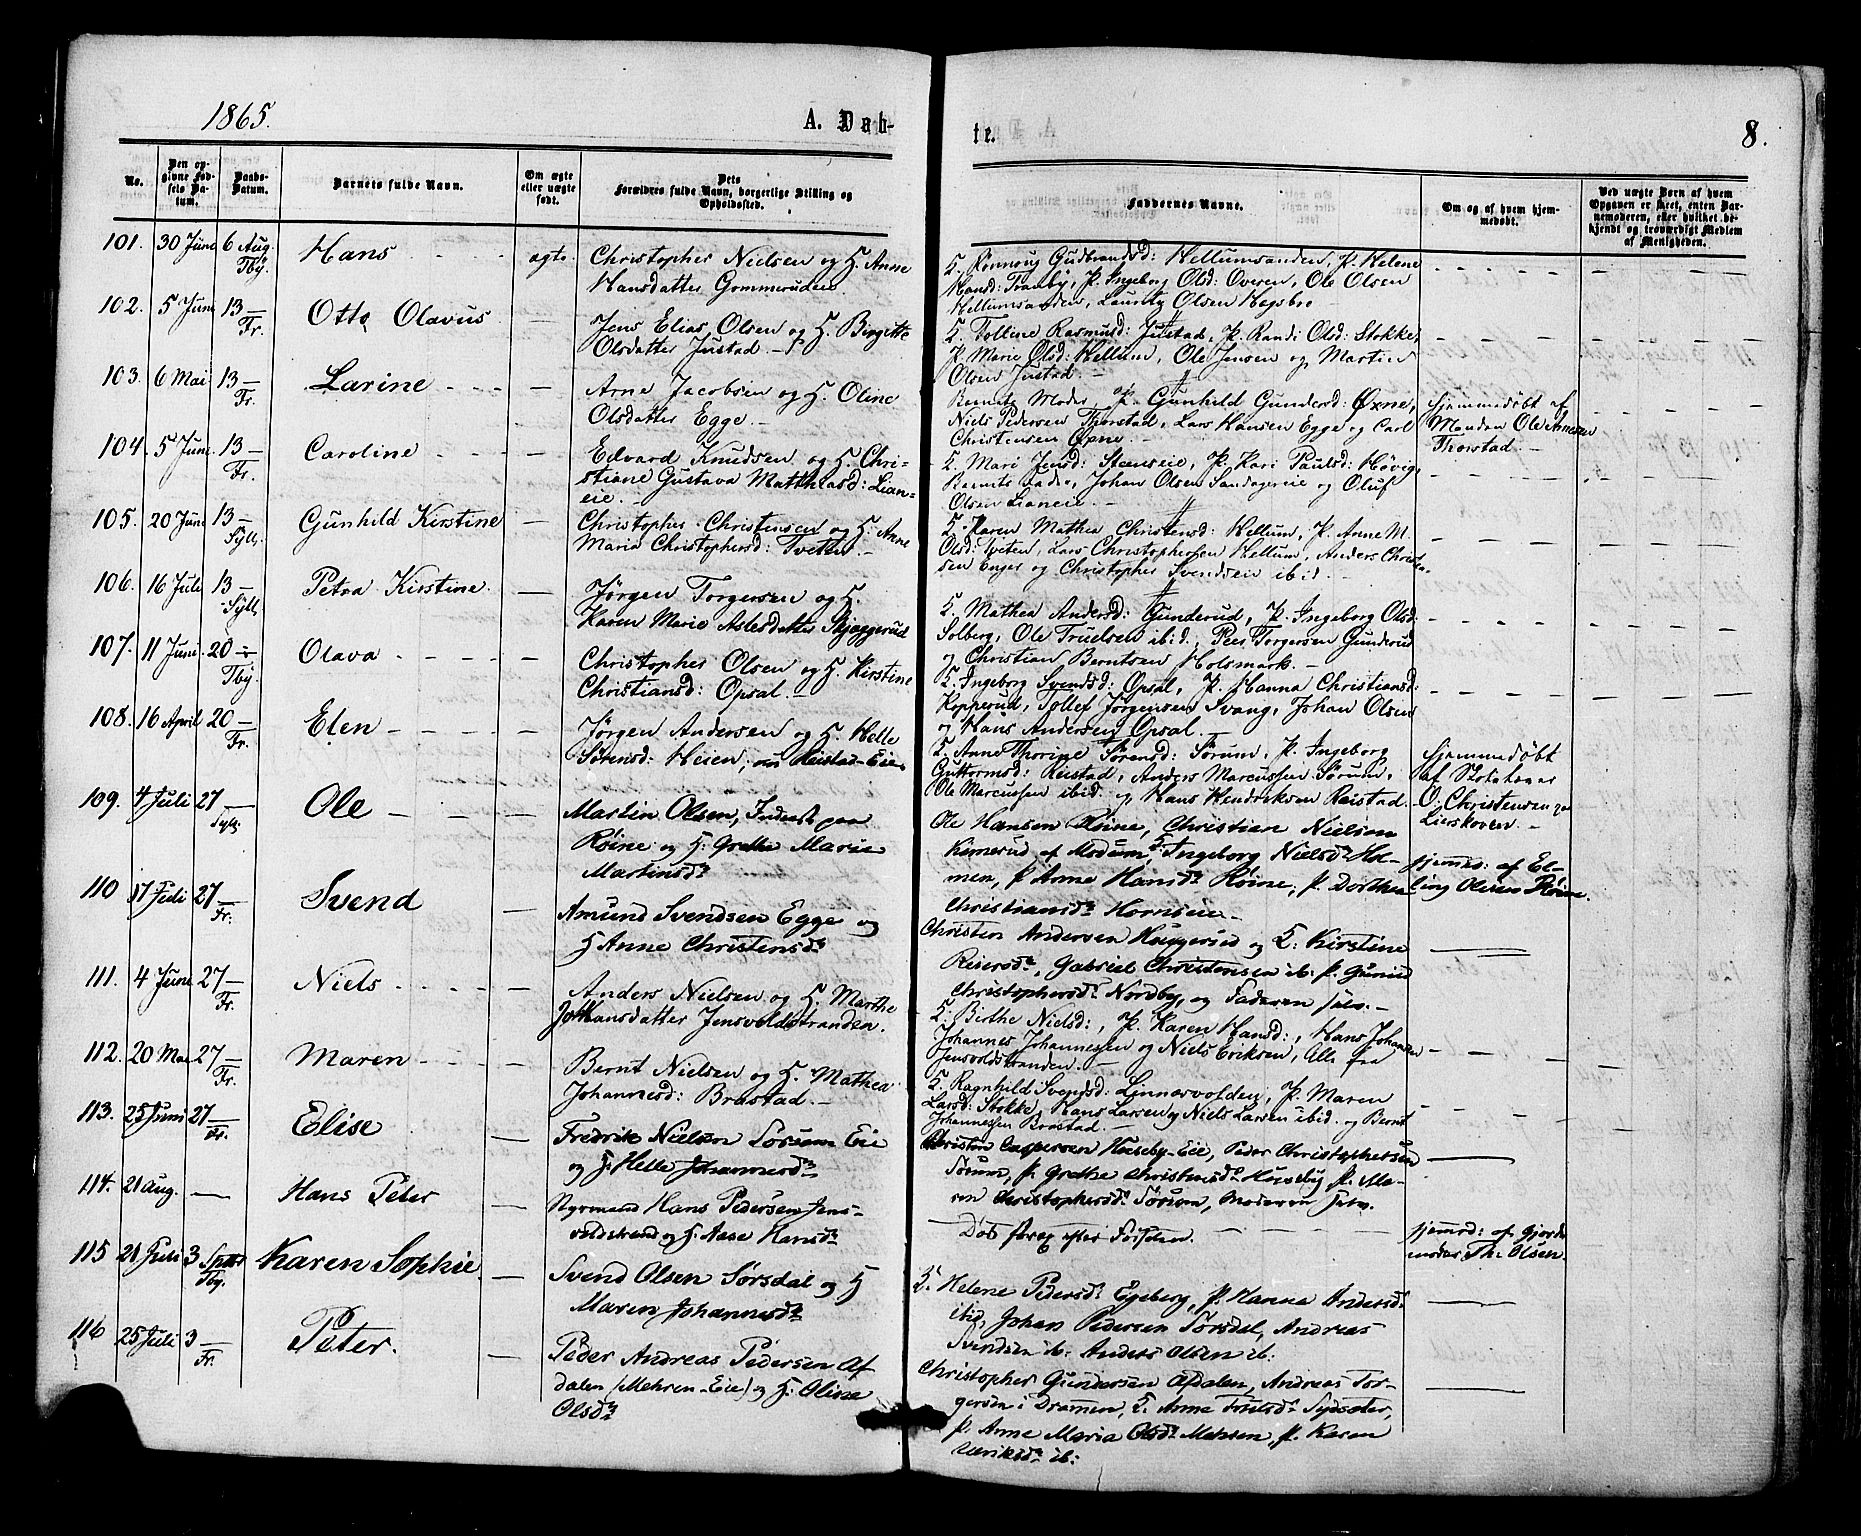 1865.
A. Døb-
te.
8.
No.
Den op-
givne Fød-
sels Da-
tum.
Daabs-
Datum.
Barnets fulde Navn.
Om ægte
eller uægte
født.
Dets
Forældres fulde Navn, borgerlige Stilling og
Opholdssted.
Faddernes Navne.
Om og af hvem hjem-
medøbt.
Ved uægte Børn af hvem
Opgaven er skeet, enten Bar-
nemoderen, eller hvilket be-
kjendt og troværdigt Medlem
af Menigheden.
101. 30 Juni 6 Aug. Tby. Hans ægte
Christopher Nielsen og H. Anne
Hansdatter Gommeruden.
K. Rønnoug Gudbrandsd: Hellumsanden, P. Helene
Hansd: Tranby, P. Ingeborg Olsd: Overen, Ole Olsen
Hellumsanden, Lauritz Olsen Hagsbro
102. 5 Juni 13 — Fr. Otto Olavus —
Jens Elias Olsen og H. Birgitte
Olsdatter Justad. —
K. Golline Rasmusd: Justad, P. Randi Olsd: Stokke,
P. Marie Olsd: Hellum, Ole Jensen og Martin
Olsen Justad. —
103. 6 Mai 13 — Fr. Larine —
Arne Jacobsen og H. Oline
Olsdatter Egge. —
Barnets Moder, P. Gunhild Gundersd: Øxne,
Niels Pedersen Thorstad, Lars Hansen Egge og Carl
Christensen Øxne. —
Hjemmedøbt af
Manden Ole Arnesen
Thorstad. —
104. 5 Juni 13 — Fr. Caroline —
Edvard Knudsen og H. Chri-
stiane Gustava Matthiasd: Lian-
eie. —
K. Mari Jensd: Stenseie, P. Kari Paulsd: Høvig,
Barnets Fader, Johan Olsen Sandagereie og Oluf
Olsen Lianeie. —
105. 20 Juni 13 — Syll. Gunhild Kirstine —
Christopher Christensen og H. Anne
Maria Christophersd: Tveten. —
K. Karen Mathea Christensd: Hellum, P. Anne M.
Olsd: Tveten, Lars Christophersen Hellum, Anders Christen-
sen Enger og Christopher Svendsen ibid. —
106. 16 Juli 13 — Syll. Petra Kirstine —
Jørgen Torgersen og H.
Karen Marie Aslesdatter Skjæggerud
K. Mathea Andersd: Gunderud, P. Ingeborg Olsd:
Solberg, Ole Truelsen ibid, Peer Torgersen Gunderud
og Christian Berntsen Holsmark. —
107. 11 Juni 20 — Tby. Olava —
Christopher Olsen og H. Kirstine
Christiansd: Opsal. —
K. Ingeborg Svendsd: Opsal, P. Hanna Christiansd:
Kopperud, Tollef Jørgensen Svang, Johan Olsen
og Hans Andersen Opsal. —
108. 16 April 20 — Fr. Elen —
Jørgen Andersen og H. Helle
Sørensd: Heien, Reistad-Eie
K. Anne Thorine Sørensd: Sørum, P. Ingeborg
Guttormsd: Reistad, Anders Marcussen Sørum,
Ole Marcussen ibid. og Hans Hendriksen Reistad. —
Hjemmedøbt
af Skoleholder
O. Christensen paa
Lierskoven. —
109. 4 Juli 27 — Sylg. Ole —
Martin Olsen, Inderst paa
Røine og H. Grethe Marie
Martinsdr
Ole Hansen Røine, Christian Nielsen
Kimerud af Modum, K. Ingeborg Nielsdr Hol-
men, P. Anne Hansdr Røine, P. Dorthea
Christiansdr Hornseie —
hjemmed: af El-
ling Olsen Røine.
110 17 Juli 27 — Fr. Svend —
Amund Svendsen Egge og
H Anne Christensdr
Christen Andersen Houggerud og K: Kirstine
Reiersdr, Gabriel Christensen ib: P. Gunild
Christophersdr Nordby, og Faderen selv. —
111. 4 Juni 27 — Fr. Niels —
Anders Nielsen og H. Marthe
Johansdatter Jensvoldstranden.
K. Birthe Nielsd:, P. Karen Hansd:, Hans Johansen
Johannes Johannessen og Niels Eriksen, Alle fra
Jensvoldstranden. —
112. 20 Mai 27 — Fr. Maren —
Bernt Nielsen og H. Mathea
Johannesd: Brastad. —
K. Ragnhild Svendsd: Linnesvolden, P. Maren
Larsd: Stokke, Hans Larsen og Niels Larsen ibid. og Bernt
Johannessen Brastad. —
113. 25 Juni 27 — Fr. Elise —
Fredrik Nielsen Sørum Eie
og H. Helle Johannesdr
Christen Caspersen Huseby-Eie, Peder Christophersen
Sørum, P. Grethe Christensdr Huseby, P. Ma-
ren Christophersdr Sørum, Moderen selv.
114. 21 Aug. — Hans Peter —
Styrmand Hans Pedersen Jens-
voldstrand og H. Aase Hansdr
— Død strax efter Fødselen.
hjemmd: af Gjorde-
moder Th. Olsen.
115 21 Juli 3 Septbr Tby. Karen Sophie —
Svend Olsen Sørsdal og H
Maren Johannesdr
K. Helene Pedersdr Egeberg, P. Hanna Andersdr
ibid, Johan Pedersen Sørsdal, Andreas
Svendsen ib. Anders Olsen ib:
116 25 Juli 3 — Fr. Peter. —
Peder Andreas Pedersen Af
dalen (Mehren-Eie) og H. Oline
Olsdr
Christopher Gundersen Afdalen, Andreas Tor-
gersen i Dramen, K. Anne Troelsdr Sydsæter,
P. Anne Maria Olsdr Mehren, P. Karen
Ulriksdr ib: